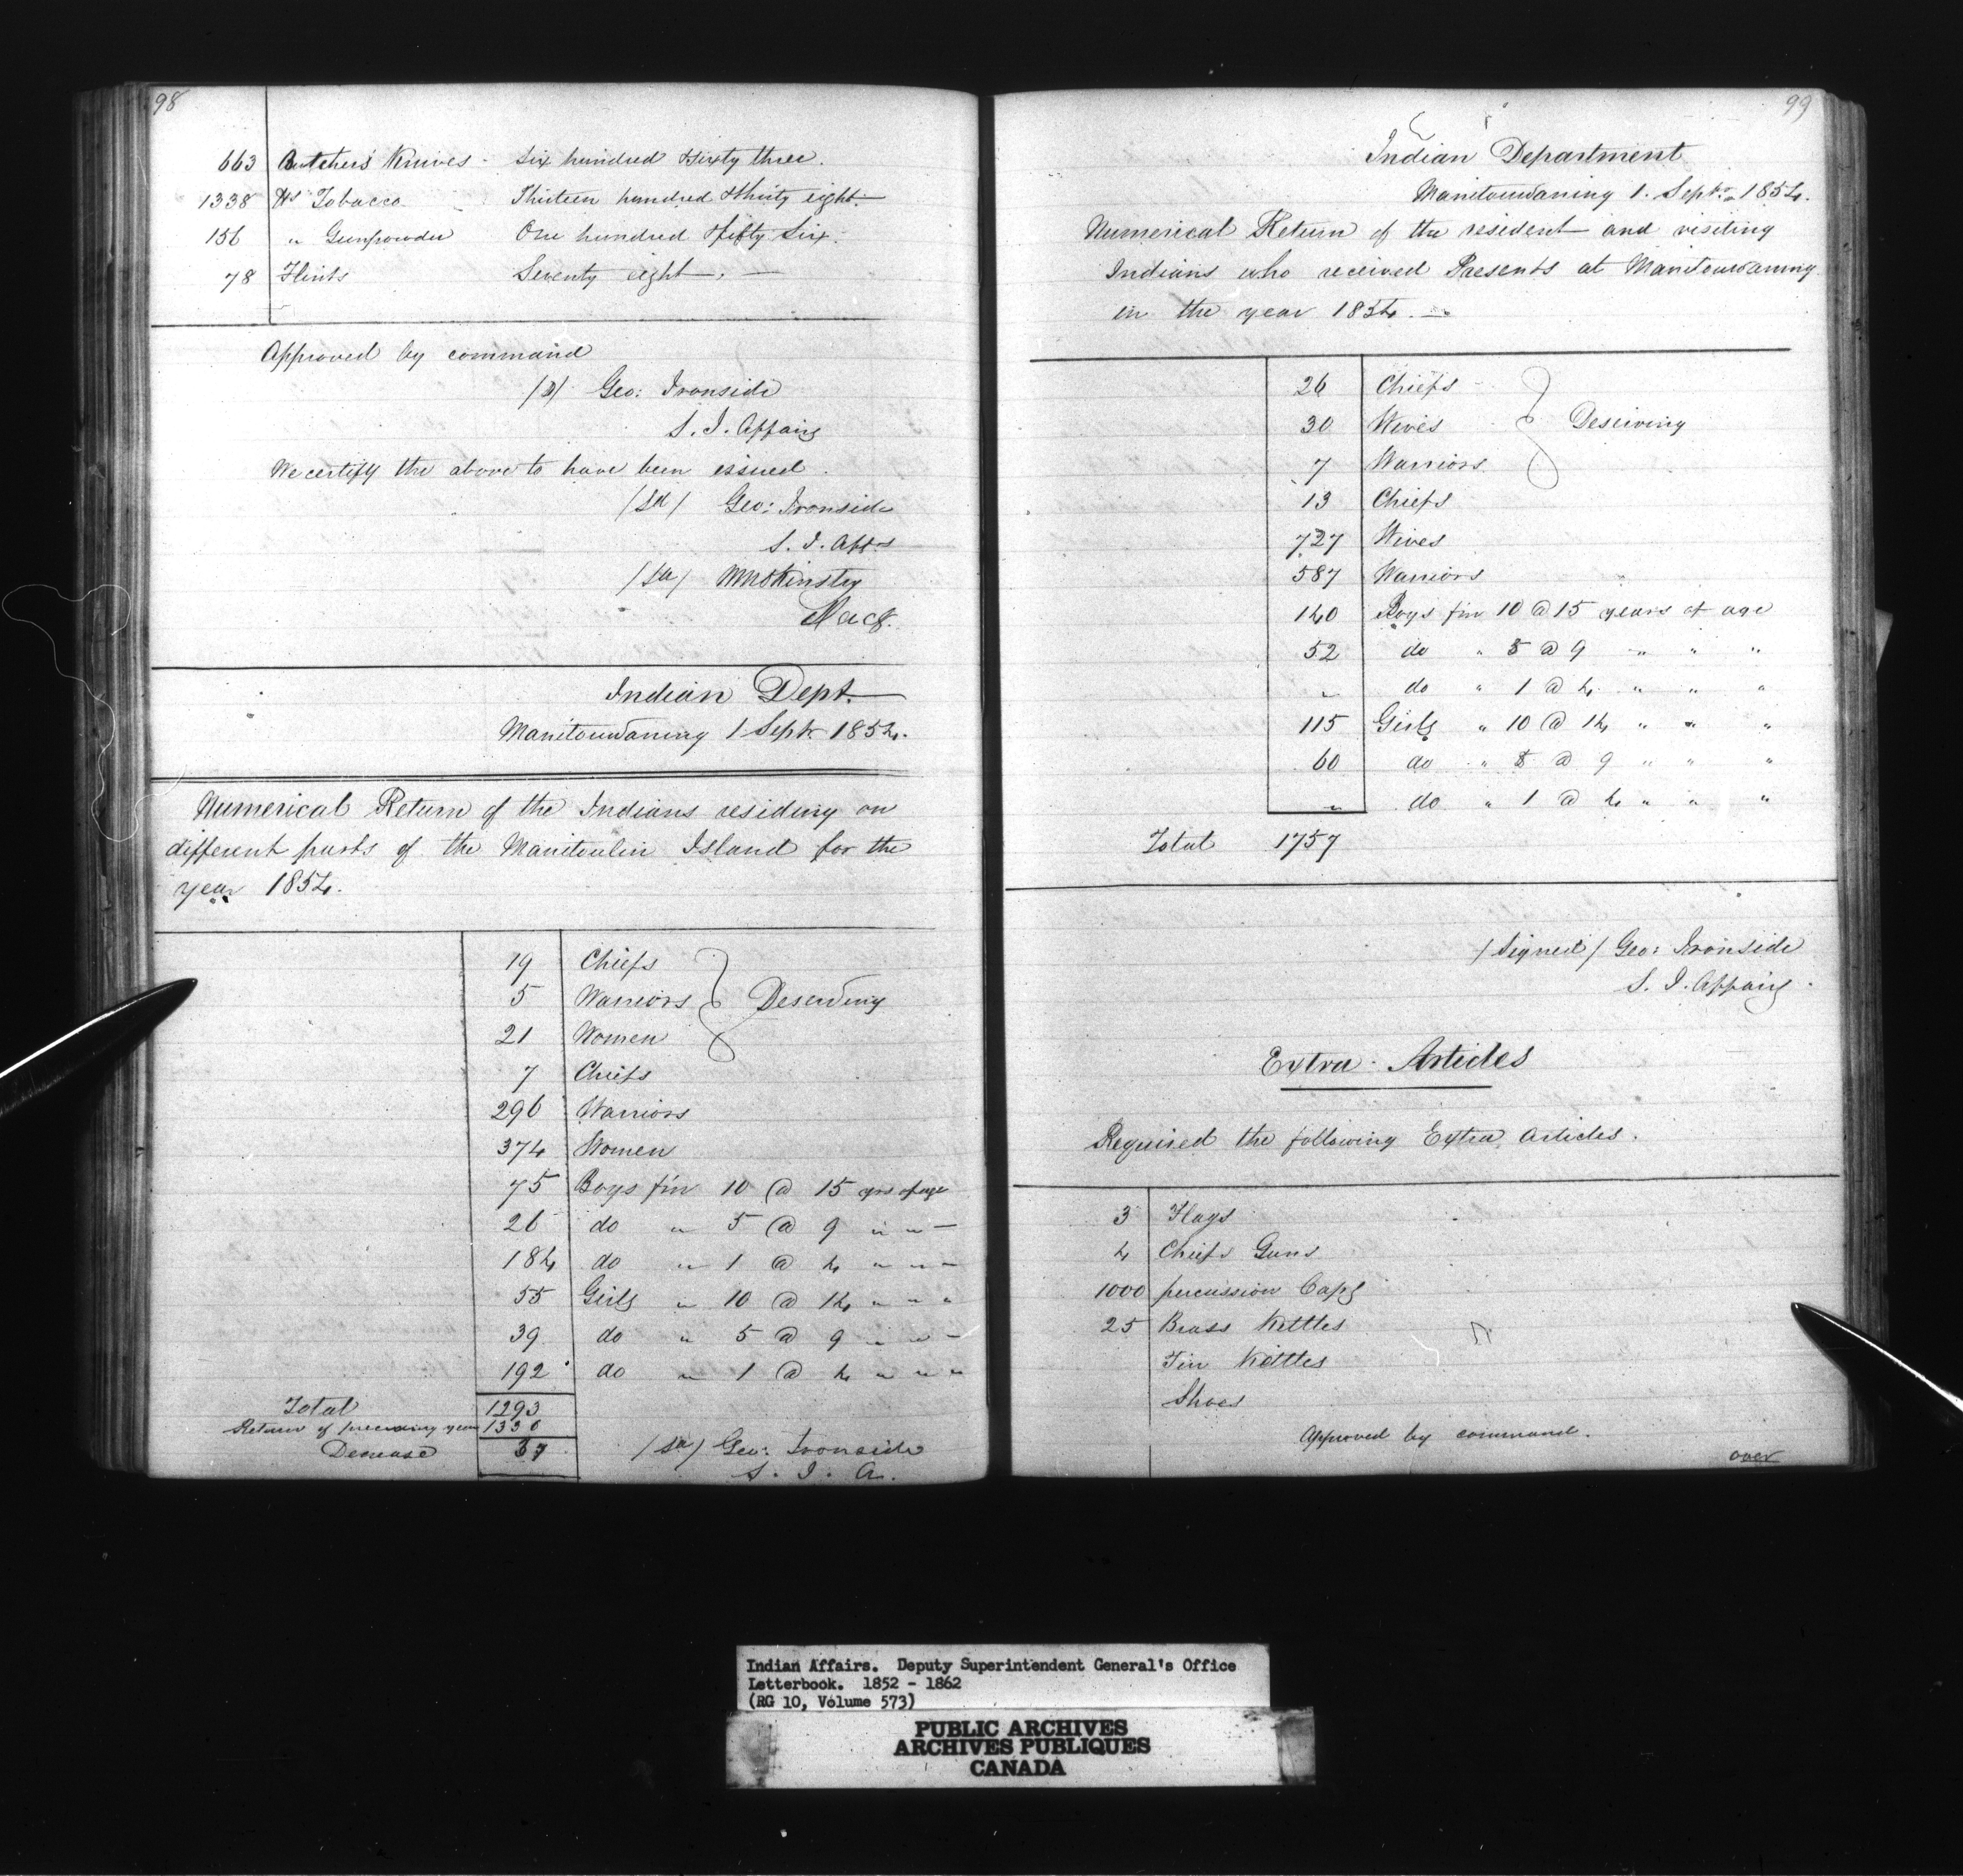 98
663 Butchers Knives - Six hundred & sixty three.
1338 lbs Tobacco - Thirteen hundred & thirty eight.
156 " Gunpowder One hundred & fifty Six.
78 Flints Seventy eight.
Approved by command
(s) Geo: Ironside
S. I. Affairs
We certify the above to have been issued.
(Sd) Geo: Ironside
S. I. Affrs
(Sd)
Indian Dept.
Manitouwaning 1 Septr 1854.
Numerical Return of the Indians residing on
different parts of the Manitoulin Island for the
year 1854.
19 Chiefs
5 Warriors } Deserving
21 Women
7 Chiefs
296 Warriors
374 Women
75 Boys frm 10 @ 15 yrs of age
26 do " 5 @ 9 " " "
184 do " 1 @ 4 " " "
55 Girls " 10 @ 14 " " "
39 do " 5 @ 9 " " "
192 do " 1 @ 4 " " "
Total 1293
Return of preceding year 1330
Decrease 37
(Sd) Geo: Ironside
S. I. A.
99
Indian Department
Manitouwaning 1. Septr 1854.
Numerical Return of the resident and visiting
Indians who received Presents at Manitouwaning
in the year 1854.
26 Chiefs
30 Wives } Deserving
7 Warriors
13 Chiefs
727 Wives
587 Warriors
140 Boys frm 10 @ 15 years of age
52 do " 5 @ 9 " " "
" do " 1 @ 4 " " "
115 Girls " 10 @ 14 " " "
60 do " 5 @ 9 " " "
" do " 1 @ 4 " " "
Total 1757
(Signed) Geo: Ironside
S. I. Affairs.
Extra Articles
Required the following Extra Articles.
3 Flags
4 Chiefs Guns
1000 percussion Caps
25 Brass Kettles
Tin Kettles
Shoes
Approved by command.
over
Indian Affairs. Deputy Superintendent General's Office
Letterbook. 1852 - 1862
(RG 10, Volume 573)
PUBLIC ARCHIVES
ARCHIVES PUBLIQUES
CANADA